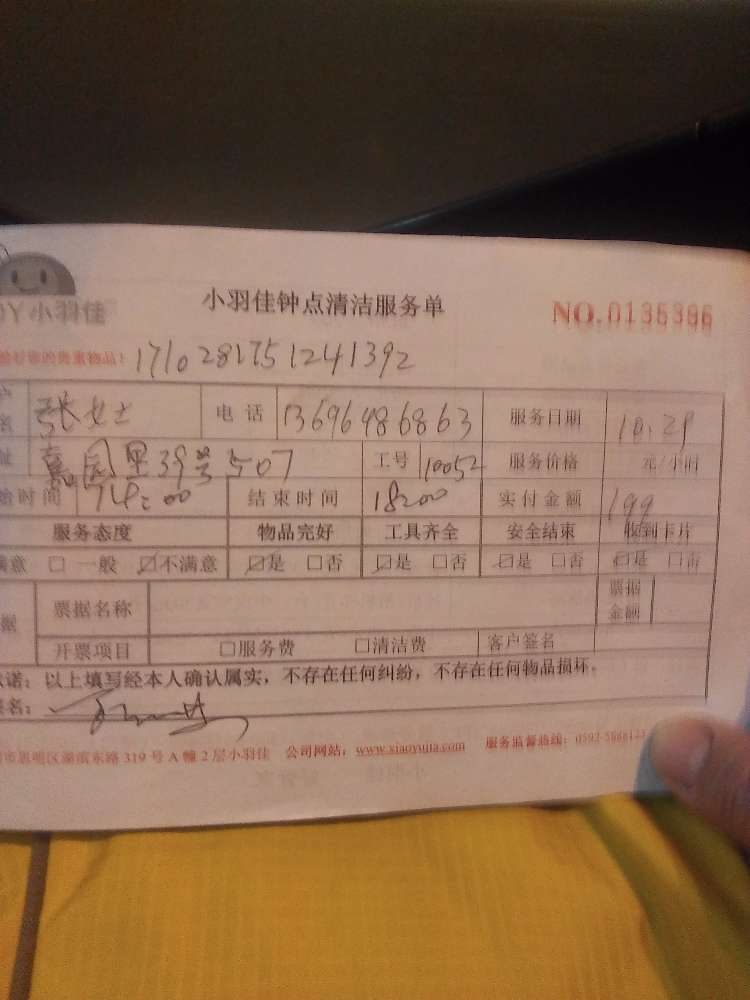 小羽佳
小羽佳钟点清洁服务单
NO.0135396
的贵重物品！ 1710281751241392
张女士 电话 13696486863 服务日期 10.29
嘉园里39号507 工号 10052 服务价格 元/小时
时间 14:00 结束时间 18:00 实付金额 199
服务态度 物品完好 工具齐全 安全结束 收到卡片
满意 □ 一般 ☑不满意 ☑是 □否 ☑是 □否 ☑是 □否 ☑是 □否
据 票据名称 票据金额
开票项目 □服务费 □清洁费 客户签名
诺：以上填写经本人确认属实，不存在任何纠纷，不存在任何物品损坏。
名：
市思明区湖滨东路319号A幢2层小羽佳 公司网站：www.xiaoyujia.com 服务监督热线：0592-